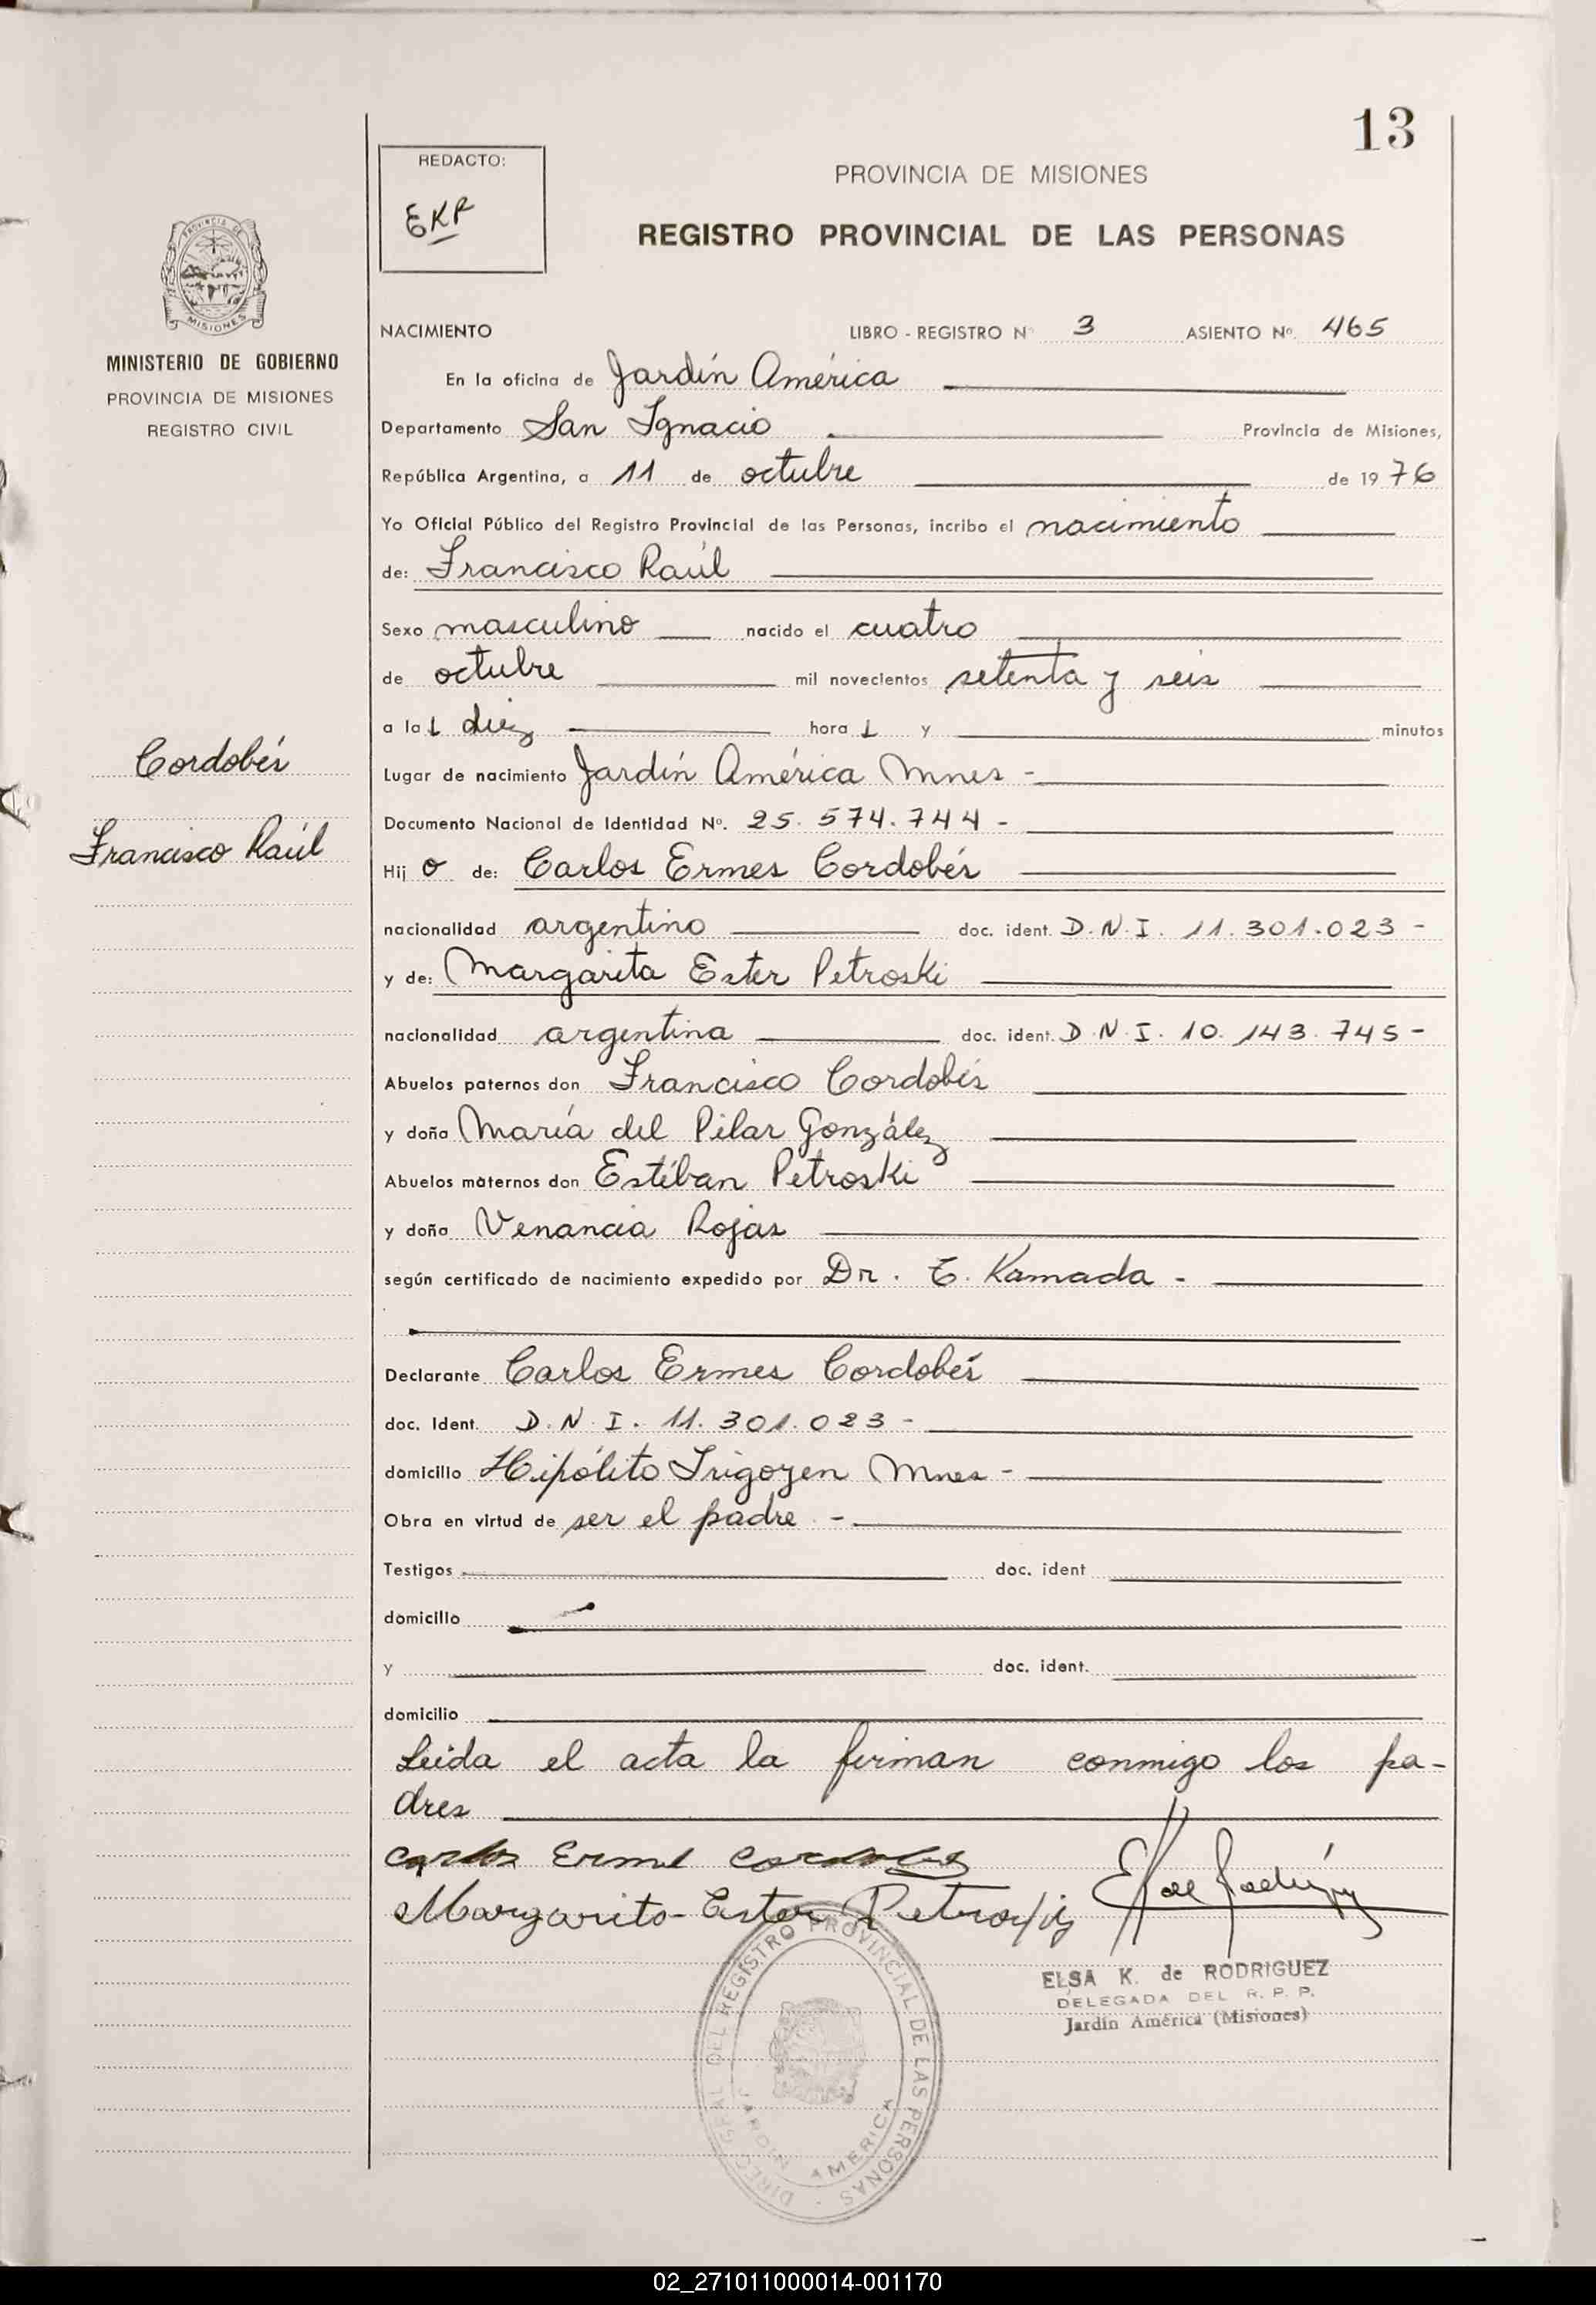 13
REDACTO:
EKR
PROVINCIA DE MISIONES
REGISTRO PROVINCIAL DE LAS PERSONAS
PROVINCIA DE
MISIONES
MINISTERIO DE GOBIERNO
PROVINCIA DE MISIONES
REGISTRO CIVIL
NACIMIENTO LIBRO - REGISTRO Nº 3 ASIENTO Nº. 465
En la oficina de Jardín América
Departamento San Ignacio Provincia de Misiones,
República Argentina, a 11 de octubre de 1976
Yo Oficial Público del Registro Provincial de las Personas, incribo el nacimiento
de: Francisco Raúl
Sexo masculino nacido el cuatro
de octubre mil novecientos setenta y seis
a las diez horas y minutos
Cordobés
Francisco Raúl
Lugar de nacimiento Jardín América Mnes -
Documento Nacional de Identidad Nº. 25.574.744 -
Hijo de: Carlos Ermes Cordobés
nacionalidad argentino doc. ident. D.N.I. 11.301.023 -
y de: Margarita Ester Petroski
nacionalidad argentina doc. ident. D.N.I. 10.143.745 -
Abuelos paternos don Francisco Cordobés
y doña María del Pilar González
Abuelos maternos don Estéban Petroski
y doña Venancia Rojas
según certificado de nacimiento expedido por Dr. T. Kamada -
Declarante Carlos Ermes Cordobés
doc. Ident. D.N.I. 11.301.023 -
domicilio Hipólito Irigoyen Mnes -
Obra en virtud de ser el padre -
Testigos doc. ident
domicilio
y doc. ident.
domicilio
Leida el acta la firman conmigo los pa-
dres
Carlos Ermes Cordobes
Margarita Ester Petroski
ELSA K. de RODRIGUEZ
DELEGADA DEL R. P. P.
Jardín América (Misiones)
DIREC. GRAL. DEL REGISTRO PROVINCIAL DE LAS PERSONAS
JARDIN AMERICA
02_271011000014-001170